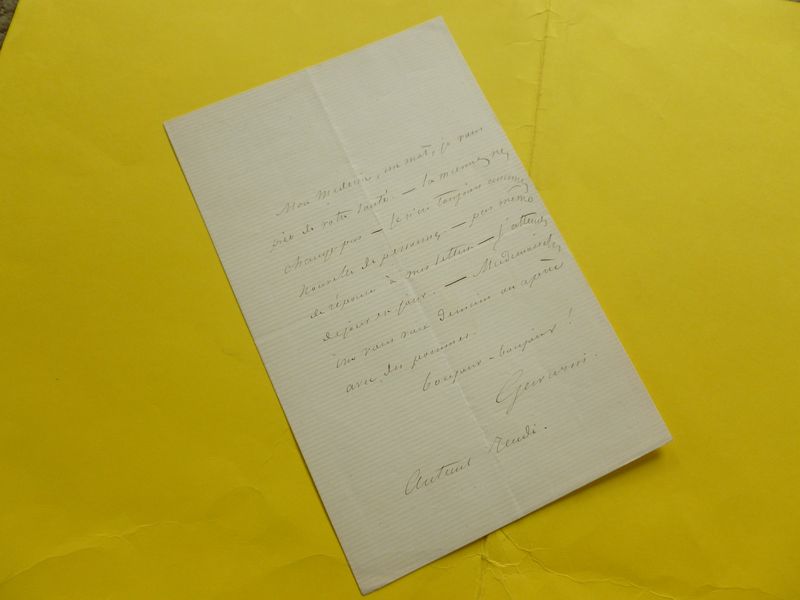 Mon Médecin, un mot, je vous
prie de votre santé. — la mienne ne
change pas — Je n'ai toujours aucunes
nouvelles de personne — pas même
de réponse à mes lettres — J'attends
de jour en jour. — Mademoiselle
ira vous voir demain ou après
avec des pommes.
bonjour - bonjour !
Gavarni.
Auteuil Jeudi.